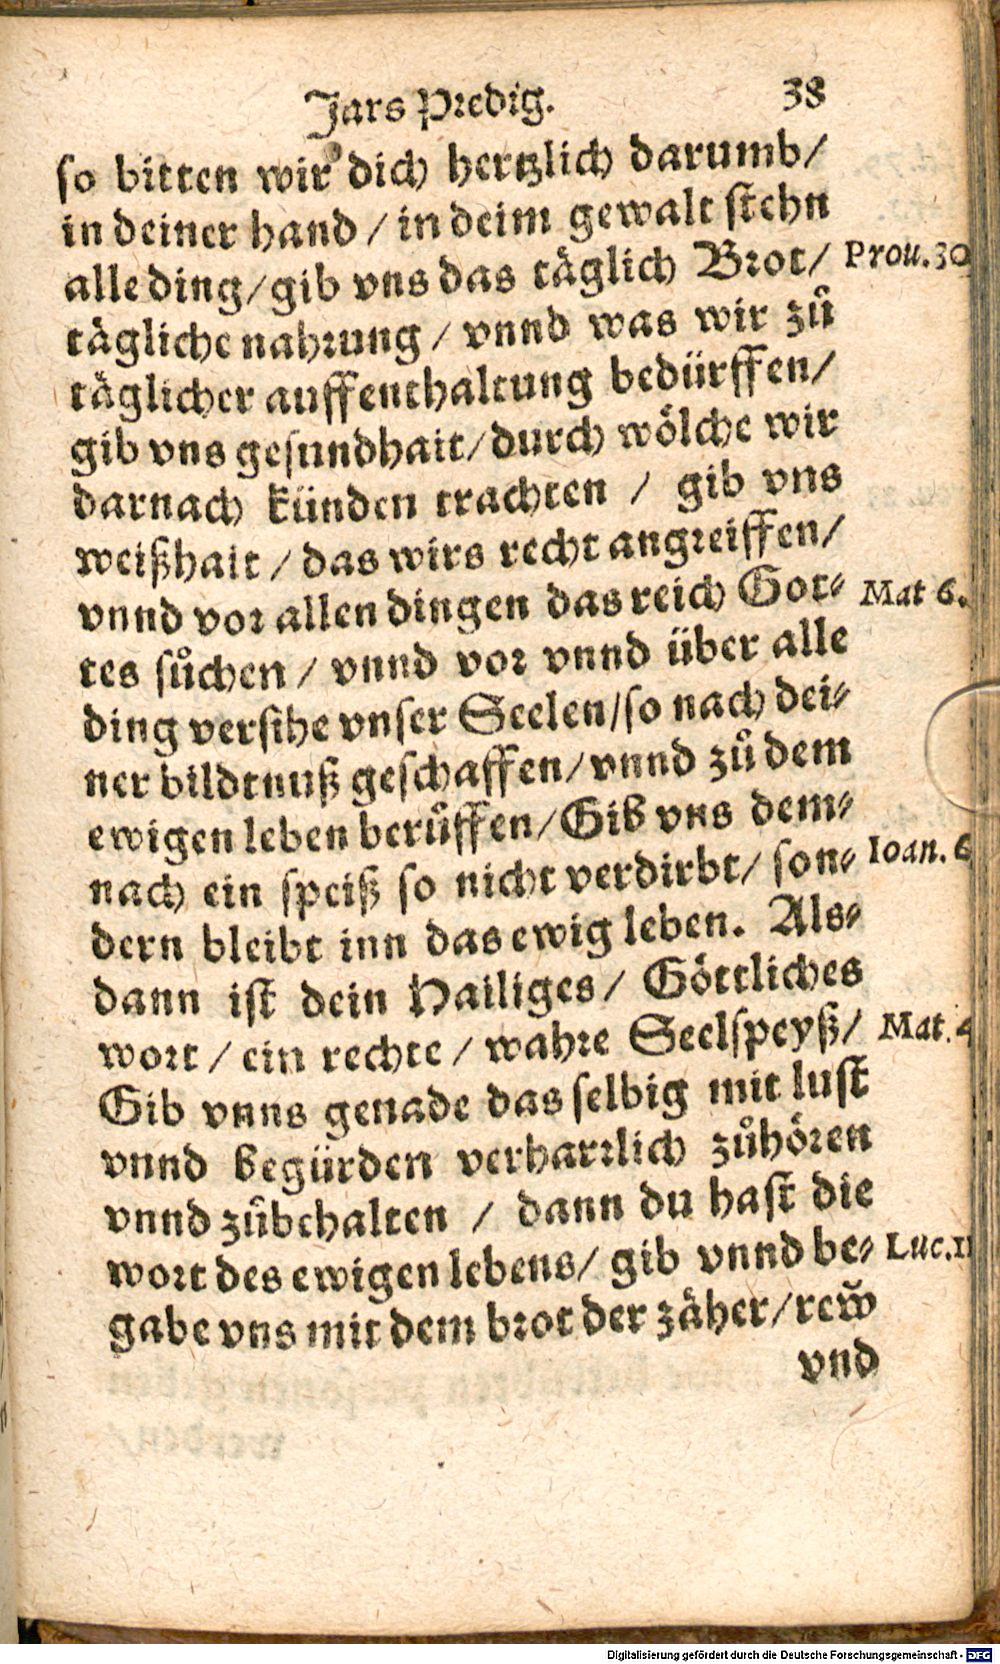 Jars Predig. 38
so bitten wir dich hertzlich darumb/
in deiner hand / in deim gewalt stehn
alle ding/gib vns das täglich Brot/ Prou. 30
tägliche nahrung / vnnd was wir zů
täglicher auffenthaltung bedürffen/
gib vns gesundhait/durch wölche wir
darnach künden trachten / gib vns
weißhait / das wirs recht angreiffen/
vnnd vor allen dingen das reich Got- Mat 6.
tes sůchen / vnnd vor vnnd über alle
ding versihe vnser Seelen/so nach dei-
ner bildtnuß geschaffen/vnnd zů dem
ewigen leben berůffen/Gib vns dem-
nach ein speiß so nicht verdirbt/ son- Ioan. 6
dern bleibt inn das ewig leben. Als-
dann ist dein Hailiges/ Göttliches
wort / ein rechte / wahre Seelspeyß/ Mat. 4
Gib vnns genade das selbig mit lust
vnnd begürden verharrlich zůhören
vnnd zůbehalten / dann du hast die
wort des ewigen lebens/ gib vnnd be- Luc. 11
gabe vns mit dem brot der zäher/rew̌
vnd
Digitalisierung gefördert durch die Deutsche Forschungsgemeinschaft - DFG